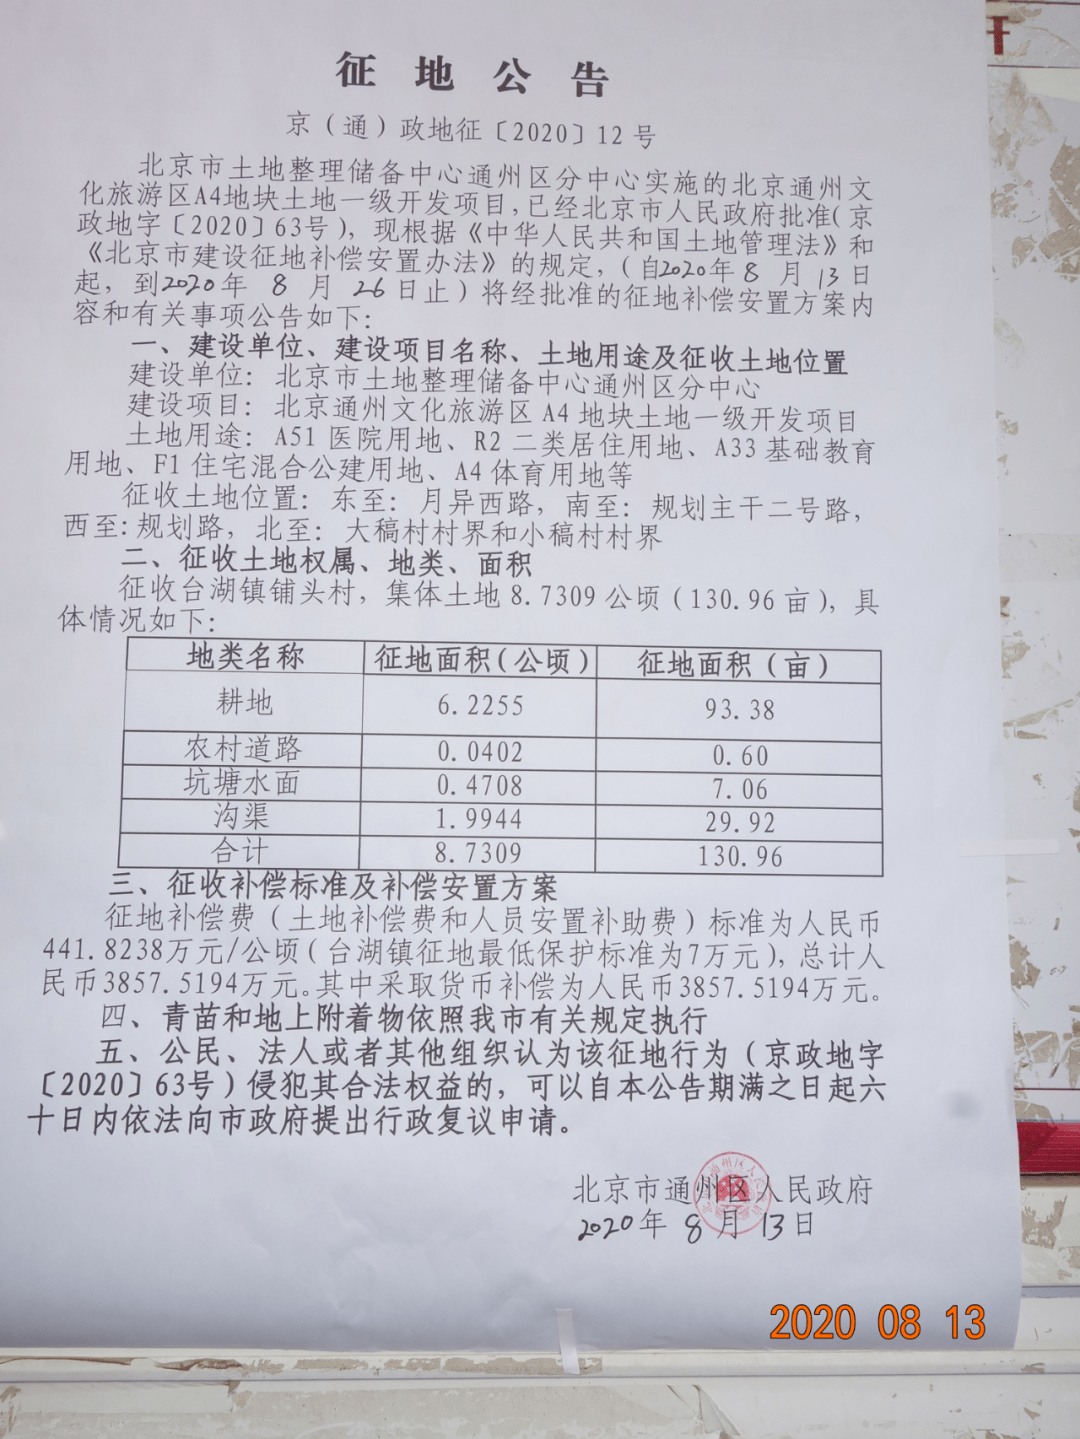 征地公告
京（通）政地征〔2020〕12号
北京市土地整理储备中心通州区分中心实施的北京通州文
化旅游区A4地块土地一级开发项目,已经北京市人民政府批准(京
政地字〔2020〕63号)，现根据《中华人民共和国土地管理法》和
《北京市建设征地补偿安置办法》的规定，（自2020年8月13日
起，到2020年8月26日止）将经批准的征地补偿安置方案内
容和有关事项公告如下：
一、建设单位、建设项目名称、土地用途及征收土地位置
建设单位：北京市土地整理储备中心通州区分中心
建设项目：北京通州文化旅游区A4地块土地一级开发项目
土地用途：A51医院用地、R2二类居住用地、A33基础教育
用地、F1住宅混合公建用地、A4体育用地等
征收土地位置：东至：月异西路，南至：规划主干二号路，
西至：规划路，北至：大稿村村界和小稿村村界
二、征收土地权属、地类、面积
征收台湖镇铺头村，集体土地8.7309公顷（130.96亩），具
体情况如下：
地类名称 征地面积(公顷) 征地面积（亩）
耕地 6.2255 93.38
农村道路 0.0402 0.60
坑塘水面 0.4708 7.06
沟渠 1.9944 29.92
合计 8.7309 130.96
三、征收补偿标准及补偿安置方案
征地补偿费（土地补偿费和人员安置补助费）标准为人民币
441.8238万元/公顷（台湖镇征地最低保护标准为7万元），总计人
民币3857.5194万元。其中采取货币补偿为人民币3857.5194万元。
四、青苗和地上附着物依照我市有关规定执行
五、公民、法人或者其他组织认为该征地行为（京政地字
〔2020〕63号）侵犯其合法权益的，可以自本公告期满之日起六
十日内依法向市政府提出行政复议申请。
北京市通州区人民政府
2020年8月13日
2020 08 13